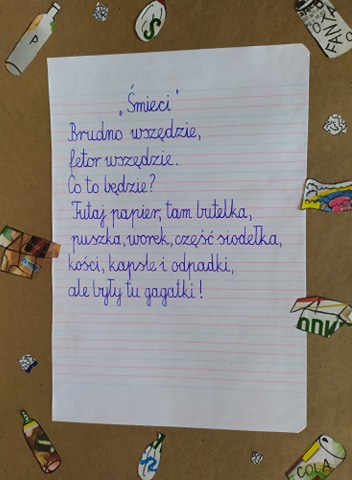 „Śmieci"
Brudno wszędzie,
fetor wszędzie.
Co to będzie?
Tutaj papier, tam butelka,
puszka, worek, część siodełka,
kości, kapsle i odpadki,
ale były tu gagatki!
P
S
FANTA
COLA